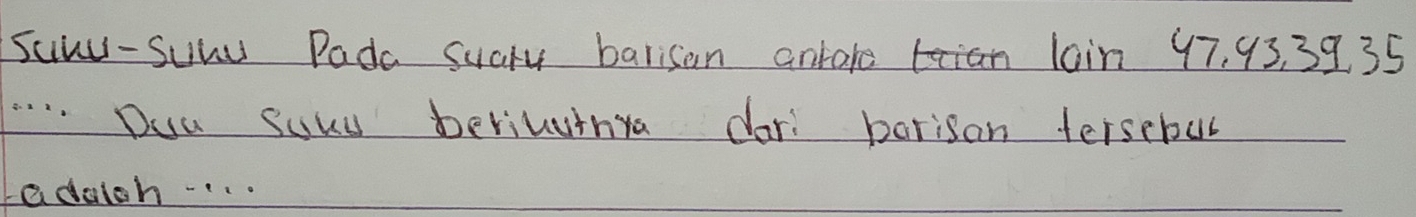 Suku-Suku Pada suatu barisan antara lain 47,43,39,35
.... Dua suku berikutnya dari barisan tersebut
adalah ....